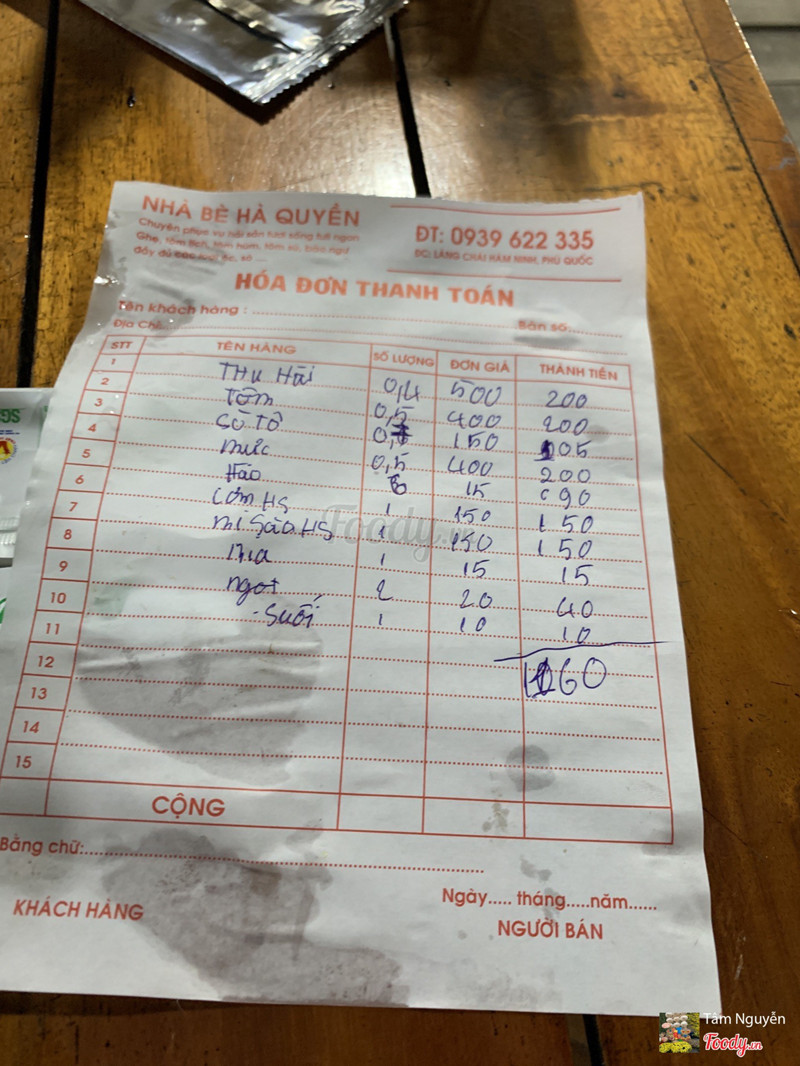 NHÀ BÈ HÀ QUYỀN
Chuyên phục vụ hải sản tươi sống tươi ngon
Ghẹ, tôm tích, tôm hùm, tôm sú, bào ngư
đầy đủ các loại ốc, sò ...
ĐT: 0939 622 335
ĐC: LÀNG CHÀI HÀM NINH, PHÚ QUỐC
HÓA ĐƠN THANH TOÁN
Tên khách hàng : Bàn số:
Địa Chỉ:
STT TÊN HÀNG SỐ LƯỢNG ĐƠN GIÁ THÀNH TIỀN
1 Thu Hải 0,4 500 200
2 Tôm 0,5 400 200
3 Sò Tô 150 105
4 Mực 0,5 400 200
5 Hào 6 15 90
6 Cơm HS 1 150 150
7 Mì Sào HS 1 150 150
8 1 15 15
9 Ngọt 2 20 40
10 Suối 1 10 10
11
12 1160
13
14
15
CỘNG
Bằng chữ:
Ngày..... tháng.....năm......
KHÁCH HÀNG NGƯỜI BÁN
Foody.vn
Tâm Nguyễn
Foody.vn